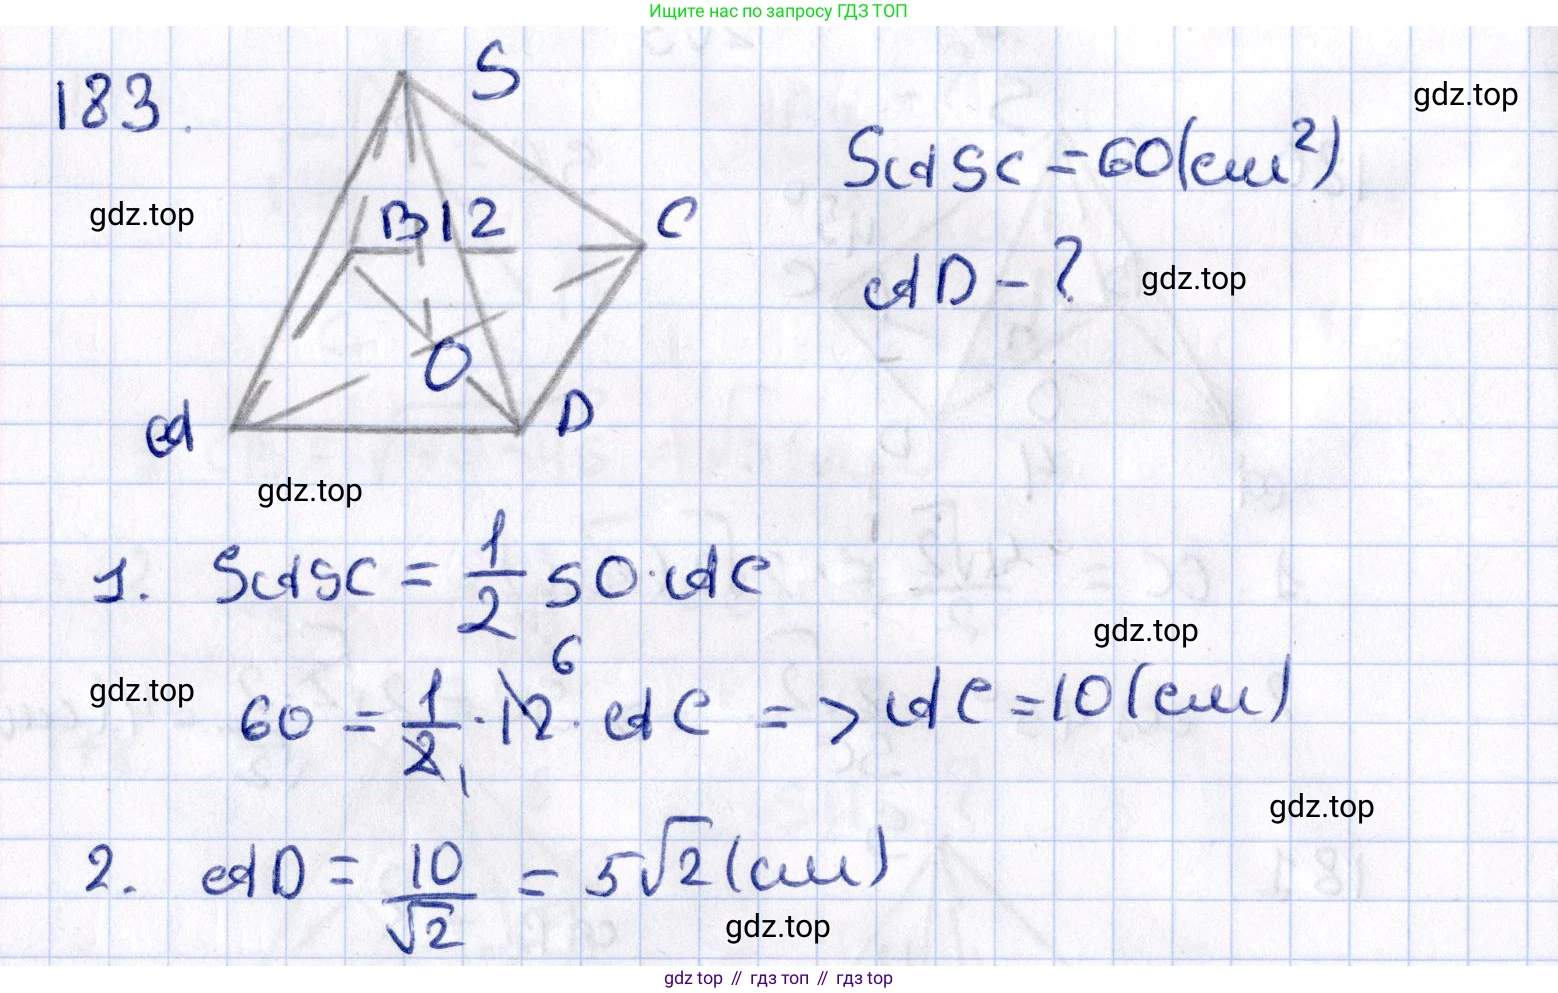 Ищите нас по запросу ГДЗ ТОП
183.
S
gdz.top
S ASC = 60 (см²)
gdz.top
B 12
C
AD - ?
gdz.top
O
A
D
gdz.top
1. S ASC = 1/2 SO · AC
gdz.top
gdz.top
60 = 1/2 1 · 12 6 · AC => AC = 10 (см)
gdz.top
2. AD = 10/√2 = 5√2 (см)
gdz.top
gdz top // гдз топ // гдз top